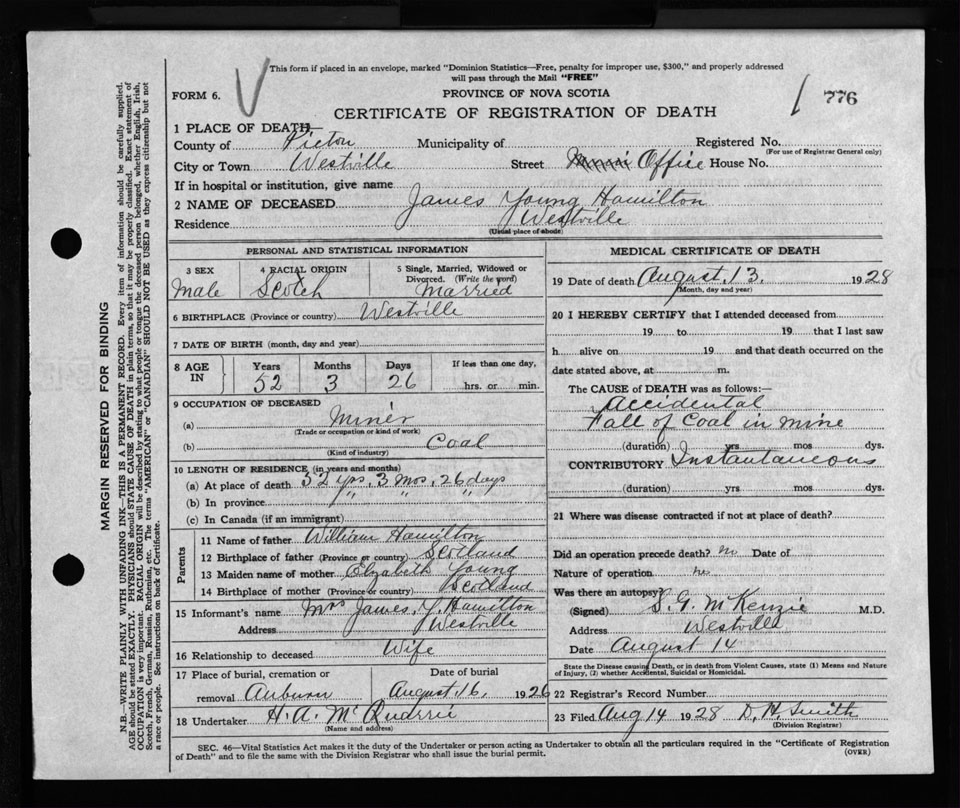 This form if placed in an envelope, marked "Dominion Statistics—Free, penalty for improper use, $300," and properly addressed
will pass through the Mail "FREE"
FORM 6.
PROVINCE OF NOVA SCOTIA
776
CERTIFICATE OF REGISTRATION OF DEATH
1 PLACE OF DEATH—
County of Pictou Municipality of Registered No.
(For use of Registrar General only)
City or Town Westville Street Office House No.
If in hospital or institution, give name
2 NAME OF DECEASED James Young Hamilton
Residence Westville
(Usual place of abode)
PERSONAL AND STATISTICAL INFORMATION
3 SEX 4 RACIAL ORIGIN 5 Single, Married, Widowed or
Divorced. (Write the word)
Male Scotch Married
6 BIRTHPLACE (Province or country) Westville
7 DATE OF BIRTH (month, day and year)
8 AGE IN Years Months Days If less than one day,
52 3 26 hrs. or min.
9 OCCUPATION OF DECEASED
(a) Miner
(Trade or occupation or kind of work)
(b) Coal
(Kind of industry)
10 LENGTH OF RESIDENCE (in years and months)
(a) At place of death 52 yrs, 3 mos, 26 days
(b) In province " " "
(c) In Canada (if an immigrant)
Parents
11 Name of father William Hamilton
12 Birthplace of father (Province or country) Scotland
13 Maiden name of mother Elizabeth Young
14 Birthplace of mother (Province or country) Scotland
15 Informant's name Mrs James Y. Hamilton
Address Westville
16 Relationship to deceased Wife
17 Place of burial, cremation or Date of burial
removal Auburn August 16, 1926
18 Undertaker H. A. McQuarrie
(Name and address)
MEDICAL CERTIFICATE OF DEATH
19 Date of death August, 13. 1928
(Month, day and year)
20 I HEREBY CERTIFY that I attended deceased from
19 to 19 that I last saw
h alive on 19 and that death occurred on the
date stated above, at m.
The CAUSE of DEATH was as follows:—
Accidental
Fall of Coal in mine
(duration) yrs mos dys.
CONTRIBUTORY Instantaneous
(duration) yrs mos dys.
21 Where was disease contracted if not at place of death?
Did an operation precede death? no Date of
Nature of operation
Was there an autopsy?
(Signed) S. G. McKenzie M.D.
Address Westville
Date August 14
State the Disease causing Death, or in death from Violent Causes, state (1) Means and Nature
of Injury, (2) whether Accidental, Suicidal or Homicidal.
22 Registrar's Record Number
23 Filed Aug 14 1928 D. H. Smith
(Division Registrar)
SEC. 46—Vital Statistics Act makes it the duty of the Undertaker or person acting as Undertaker to obtain all the particulars required in the "Certificate of Registration
of Death" and to file the same with the Division Registrar who shall issue the burial permit.
(OVER)
MARGIN RESERVED FOR BINDING
N.B.—WRITE PLAINLY WITH UNFADING INK—THIS IS A PERMANENT RECORD. Every item of information should be carefully supplied.
AGE should be stated EXACTLY. PHYSICIANS should STATE CAUSE OF DEATH in plain terms, so that it may be properly classified. Exact statement of
OCCUPATION is very important. RACIAL ORIGIN will be described by stating to what people or tongue the deceased person belonged, whether English, Irish,
Scotch, French, German, Russian, Ruthenian, etc. The terms "AMERICAN" or "CANADIAN" SHOULD NOT BE USED as they express citizenship but not
a race or people. See instructions on back of Certificate.